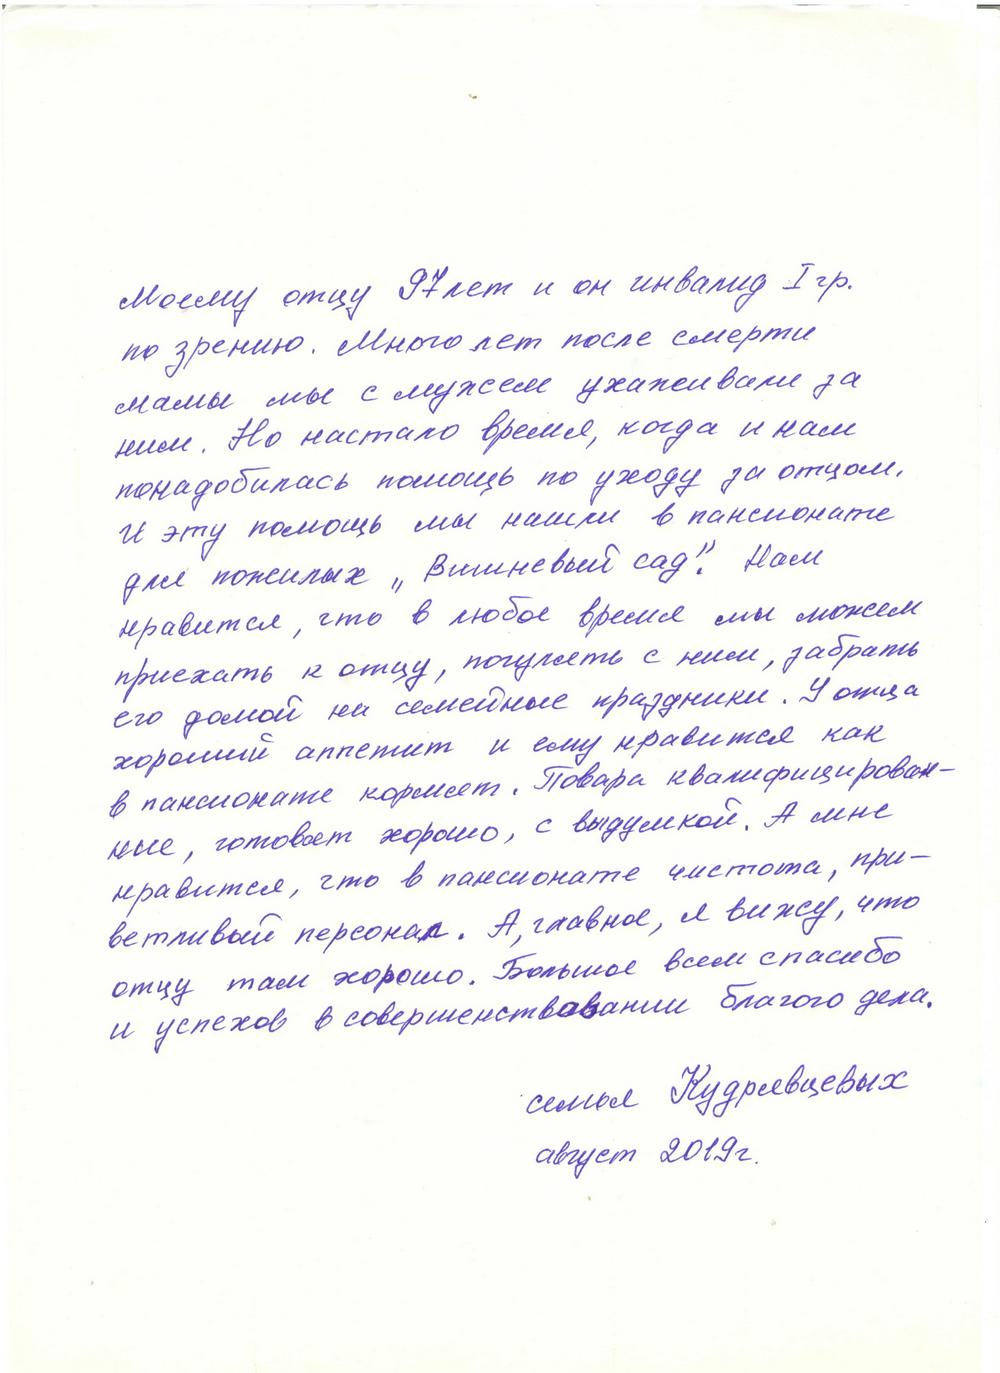 Моему отцу 97 лет и он инвалид I гр.
по зрению. Много лет после смерти
мамы мы с мужем ухаживали за
ним. Но настало время, когда и нам
понадобилась помощь по уходу за отцом.
И эту помощь мы нашли в пансионате
для пожилых „Вишневый сад". Нам
нравится, что в любое время мы можем
приехать к отцу, погулять с ним, забрать
его домой на семейные праздники. У отца
хороший аппетит и ему нравится как
в пансионате кормят. Повара квалифицирован-
ные, готовят хорошо, с выдумкой. А мне
нравится, что в пансионате чистота, при-
ветливый персонал. А, главное, я вижу, что
отцу там хорошо. Большое всем спасибо
и успехов в совершенствовании благого дела.
семья Кудрявцевых
август 2019г.